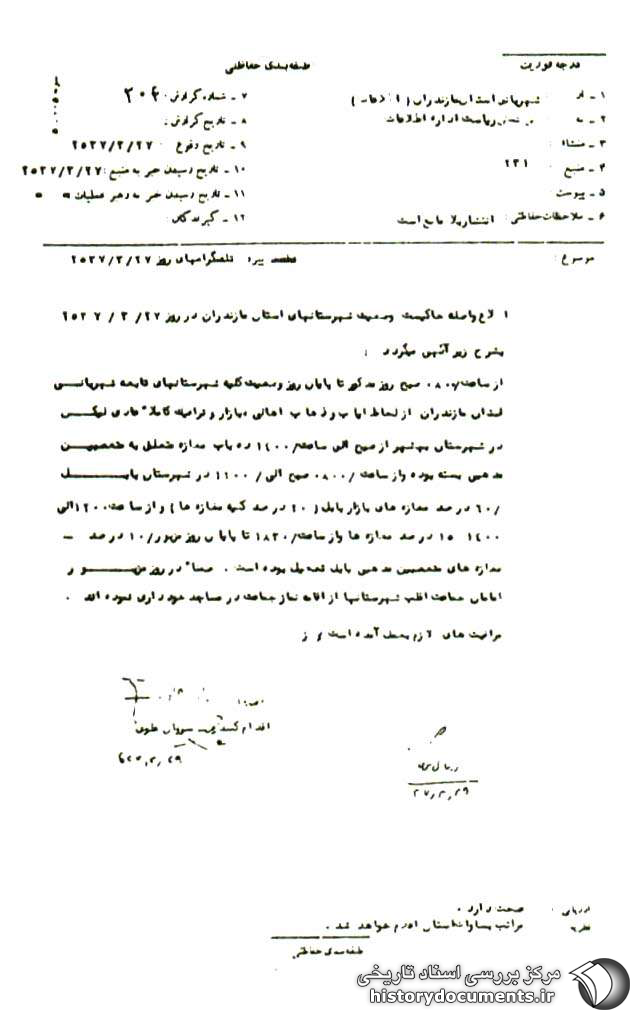 درجه فوریت
طبقه‌بندی حفاظتی
۱ - از شهربانی استان مازندران ( اطلاعات )
۲ - به ریاست اداره اطلاعات
۳ - منشاء :
۴ - منبع : ۲۳۱
۵ - پیوست :
۶ - ملاحظات حفاظتی : انتشار بلا مانع است
۷ - شماره گزارش : ۲۰۴
۸ - تاریخ گزارش :
۹ - تاریخ وقوع : ۲۵۳۷/۳/۲۷
۱۰ - تاریخ رسیدن خبر به منبع : ۲۵۳۷/۳/۲۷
۱۱ - تاریخ رسیدن خبر به رهبر عملیات " "
۱۲ - گیرندگان :
موضوع : پیرو تلگرامهای روز ۲۵۳۷/۳/۲۷
واصله حاکیست وضعیت شهرستانهای استان مازندران در روز ۲۵۳۷/۳/۲۷
بشرح زیر آگهی میگردد :
از ساعت ۰۸۰۰/ صبح روز مذکور تا پایان روز وضعیت کلیه شهرستانهای تابعه شهربانی
استان مازندران از لحاظ ایاب و ذهاب اهالی و بازار و ترافیک کاملا" عادی لیکن
در شهرستان بهشهر از صبح الی ساعت ۱۴۰۰/ ده باب مغازه متعلق به متعصبین
مذهبی بسته بوده و از ساعت ۰۸۰۰/ صبح الی ۱۲۰۰/ در شهرستان بابل
۶۰/ درصد مغازه های بازار بابل ( ۲۰ درصد کلیه مغازه ها ) و از ساعت ۱۲۰۰ الی
۱۴۰۰ ۱۵ درصد مغازه ها و از ساعت ۱۸۳۰/ تا پایان روز مزبور ۱۰/ درصد -
مغازه های متعصبین مذهبی بابل تعطیل بوده است . ضمنا" در روز مزبور
امامان جماعت اغلب شهرستانها از اقامه نماز جماعت در مساجد خودداری نموده اند .
مراقبت های لازم بعمل آمده است ی ز
اقدام کننده
۲۹
۳۷/۳/۲۹
ارزیابی : صحت دارد .
نظریه مراتب بساواک استان اعلام خواهد شد .
طبقه بندی حفاظتی
مرکز بررسی اسناد تاریخی
historydocuments.ir